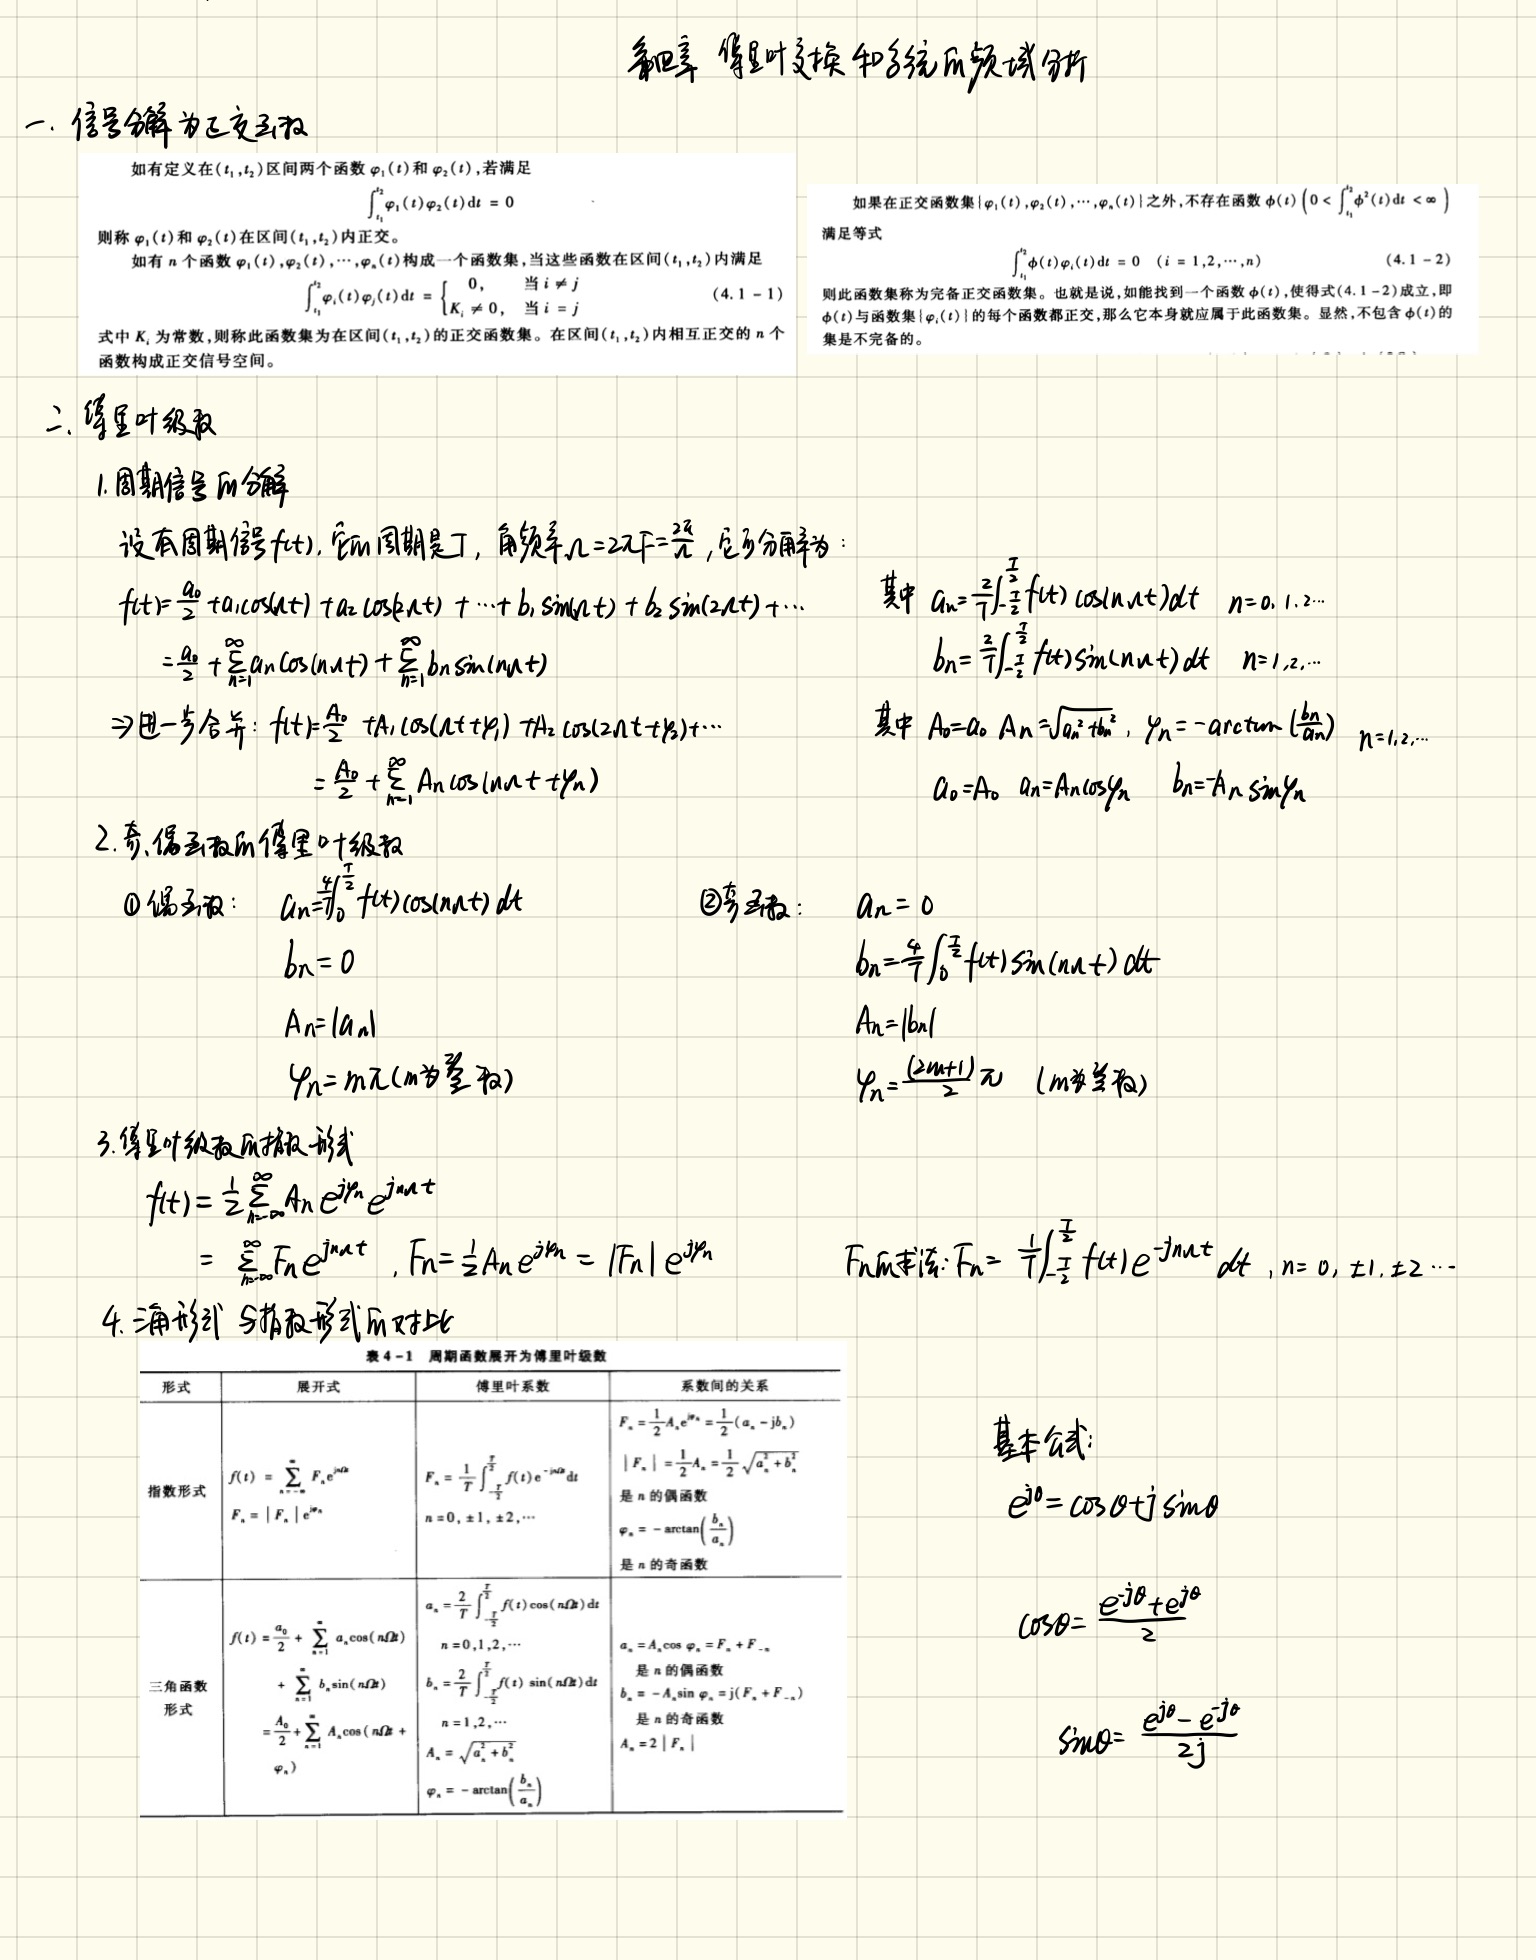 第四章 傅里叶变换和系统的频域分析
一. 信号分解为正交函数
如有定义在(t₁,t₂)区间两个函数 φ₁(t)和 φ₂(t),若满足
∫_{t₁}^{t₂} φ₁(t)φ₂(t)dt = 0
则称 φ₁(t)和 φ₂(t)在区间(t₁,t₂)内正交。
如有 n 个函数 φ₁(t),φ₂(t),…,φₙ(t)构成一个函数集,当这些函数在区间(t₁,t₂)内满足
∫_{t₁}^{t₂} φᵢ(t)φⱼ(t)dt = { 0, 当 i ≠ j
Kᵢ ≠ 0, 当 i = j (4.1-1)
式中 Kᵢ 为常数,则称此函数集为在区间(t₁,t₂)的正交函数集。在区间(t₁,t₂)内相互正交的 n 个
函数构成正交信号空间。
如果在正交函数集{φ₁(t),φ₂(t),…,φₙ(t)}之外,不存在函数 ϕ(t) (0 < ∫_{t₁}^{t₂} ϕ²(t)dt < ∞)
满足等式
∫_{t₁}^{t₂} ϕ(t)φᵢ(t)dt = 0 (i = 1,2,…,n) (4.1-2)
则此函数集称为完备正交函数集。也就是说,如能找到一个函数 ϕ(t),使得式(4.1-2)成立,即
ϕ(t)与函数集{φᵢ(t)}的每个函数都正交,那么它本身就应属于此函数集。显然,不包含 ϕ(t)的
集是不完备的。
二. 傅里叶级数
1. 周期信号的分解
设有周期信号f(t), 它的周期是T, 角频率Ω=2πF=2π/Ω, 它可分解为:
f(t)=a₀/2+a₁cos(Ωt)+a₂cos(2Ωt)+…+b₁sin(Ωt)+b₂sin(2Ωt)+…
=a₀/2+∑_{n=1}^{∞}aₙcos(nΩt)+∑_{n=1}^{∞}bₙsin(nΩt)
其中 aₙ=2/T∫_{-T/2}^{T/2}f(t)cos(nΩt)dt n=0,1,2…
bₙ=2/T∫_{-T/2}^{T/2}f(t)sin(nΩt)dt n=1,2,…
⇒进一步合并: f(t)=A₀/2+A₁cos(Ωt+φ₁)+A₂cos(2Ωt+φ₂)+…
=A₀/2+∑_{n=1}^{∞}Aₙcos(nΩt+φₙ)
其中 A₀=a₀ Aₙ=√(aₙ²+bₙ²), φₙ=-arctan(bₙ/aₙ) n=1,2,…
a₀=A₀ aₙ=Aₙcosφₙ bₙ=-Aₙsinφₙ
2. 奇、偶函数的傅里叶级数
①偶函数: aₙ=4/T∫_{0}^{T/2}f(t)cos(nΩt)dt
bₙ=0
Aₙ=|aₙ|
φₙ=mπ(m为整数)
②奇函数: aₙ=0
bₙ=4/T∫_{0}^{T/2}f(t)sin(nΩt)dt
Aₙ=|bₙ|
φₙ=(2m+1)/2 π (m为整数)
3. 傅里叶级数的指数形式
f(t)=1/2∑_{n=-∞}^{∞}Aₙe^{jφₙ}e^{jnΩt}
=∑_{n=-∞}^{∞}Fₙe^{jnΩt}, Fₙ=1/2Aₙe^{jφₙ}=|Fₙ|e^{jφₙ}
Fₙ的求法: Fₙ=1/T∫_{-T/2}^{T/2}f(t)e^{-jnΩt}dt, n=0,±1,±2…
4. 三角形式与指数形式的对比
表 4-1 周期函数展开为傅里叶级数
形式 展开式 傅里叶系数 系数间的关系
指数形式
f(t) = ∑_{n=-∞}^{∞} Fₙe^{jnΩt}
Fₙ = |Fₙ|e^{jφₙ}
Fₙ = 1/T∫_{-T/2}^{T/2} f(t)e^{-jnΩt}dt
n=0, ±1, ±2,…
Fₙ = 1/2 Aₙe^{jφₙ} = 1/2(aₙ-jbₙ)
|Fₙ| = 1/2 Aₙ = 1/2 √(aₙ²+bₙ²)
是 n 的偶函数
φₙ = -arctan(bₙ/aₙ)
是 n 的奇函数
三角函数
形式
f(t) = a₀/2 + ∑_{n=1}^{∞} aₙcos(nΩt)
+ ∑_{n=1}^{∞} bₙsin(nΩt)
= A₀/2 + ∑_{n=1}^{∞} Aₙcos(nΩt +
φₙ)
aₙ = 2/T∫_{-T/2}^{T/2} f(t)cos(nΩt)dt
n=0,1,2,…
bₙ = 2/T∫_{-T/2}^{T/2} f(t) sin(nΩt)dt
n=1,2,…
Aₙ = √(aₙ²+bₙ²)
φₙ = -arctan(bₙ/aₙ)
aₙ = Aₙcos φₙ = Fₙ+F₋ₙ
是 n 的偶函数
bₙ = -Aₙsin φₙ = j(Fₙ+F₋ₙ)
是 n 的奇函数
Aₙ = 2|Fₙ|
基本公式:
e^{jθ}=cosθ+jsinθ
cosθ=(e^{-jθ}+e^{jθ})/2
sinθ=(e^{jθ}-e^{-jθ})/2j